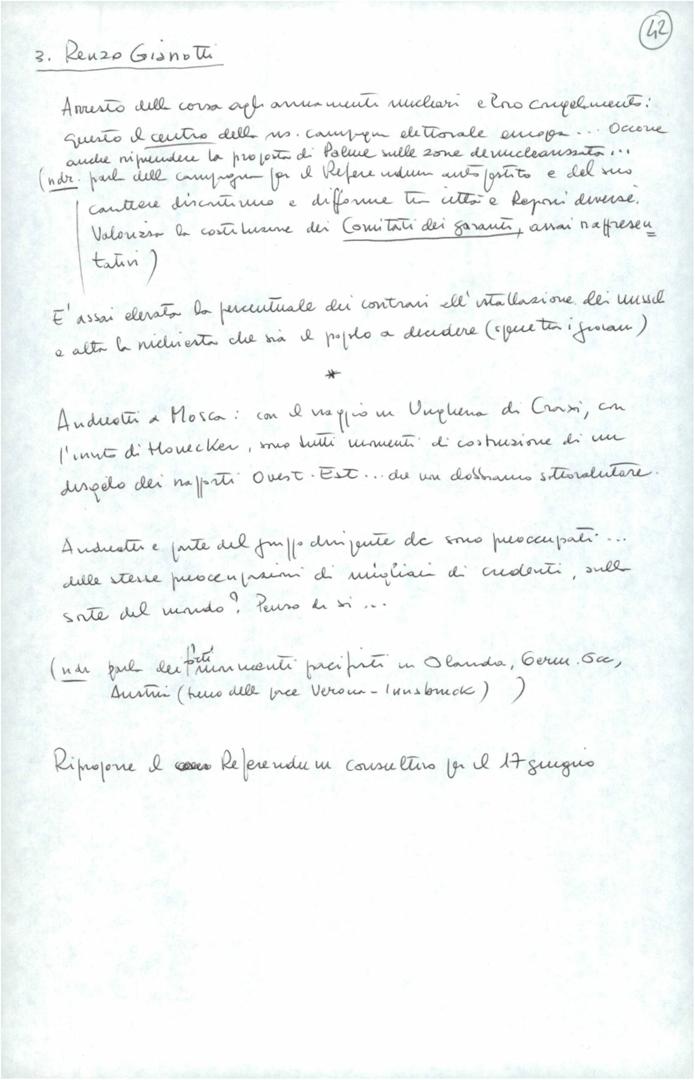 42
3. Renzo Gianotti
Arresto della corsa agli armamenti nucleari e loro congelamento:
questo il centro della ns. campagna elettorale europea ... Occorre
anche riprendere la proposta di Palme sulle zone denuclearizzate ...
(ndr. parla della campagna per il Referendum autogestito e del suo
carattere discontinuo e difforme tra città e Regioni diverse.
Valorizza la costituzione dei Comitati dei garanti, assai rappresen
tativi)
E' assai elevata la percentuale dei contrari all'installazione dei missili
e alta la richiesta che sia il popolo a decidere (specie tra i giovani)
*
Andreotti a Mosca: con il viaggio in Ungheria di Craxi, con
l'invito di Honecker, sono tutti momenti di costruzione di un
disgelo dei rapporti Ovest-Est ... che non dobbiamo sottovalutare.
Andreotti e parte del gruppo dirigente dc sono preoccupati ...
delle stesse preoccupazioni di migliaia di credenti, sulla
sorte del mondo? Penso di sì ...
(ndr parla dei forti movimenti pacifisti in Olanda, Germ. Occ,
Austria (treno della pace Verona-Innsbruck) )
Ripropone il Referendum consultivo per il 17 giugno